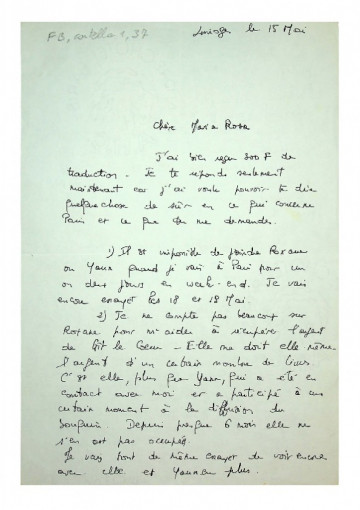 FB, cartella 1, 37
Limoges le 15 Mai
Chère Maria Rosa
J'ai bien reçu 800 F de
traduction - Je te réponds seulement
maintenant car j'ai voulu pouvoir te dire
quelque chose de sûr en ce qui concerne
Paris et ce que tu me demandes.
1) Il est impossible de joindre Roxane
ou Yann quand je vais à Paris pour un
ou deux jours en week-end. Je vais
encore essayer les 18 et 19 Mai.
2) Je ne compte pas beaucoup sur
Roxane pour m'aider à récupérer l'argent
de Git le Coeur - Elle me doit elle même
l'argent d'un certain nombre de livres
C'est elle, plus que Yann, qui a été en
contact avec moi et a participé à un
certain moment à la diffusion du
. Depuis presque 6 mois elle ne
s'en est pas occupée
Je vais tout de même essayer de voir encore
avec elle et Yann plus.